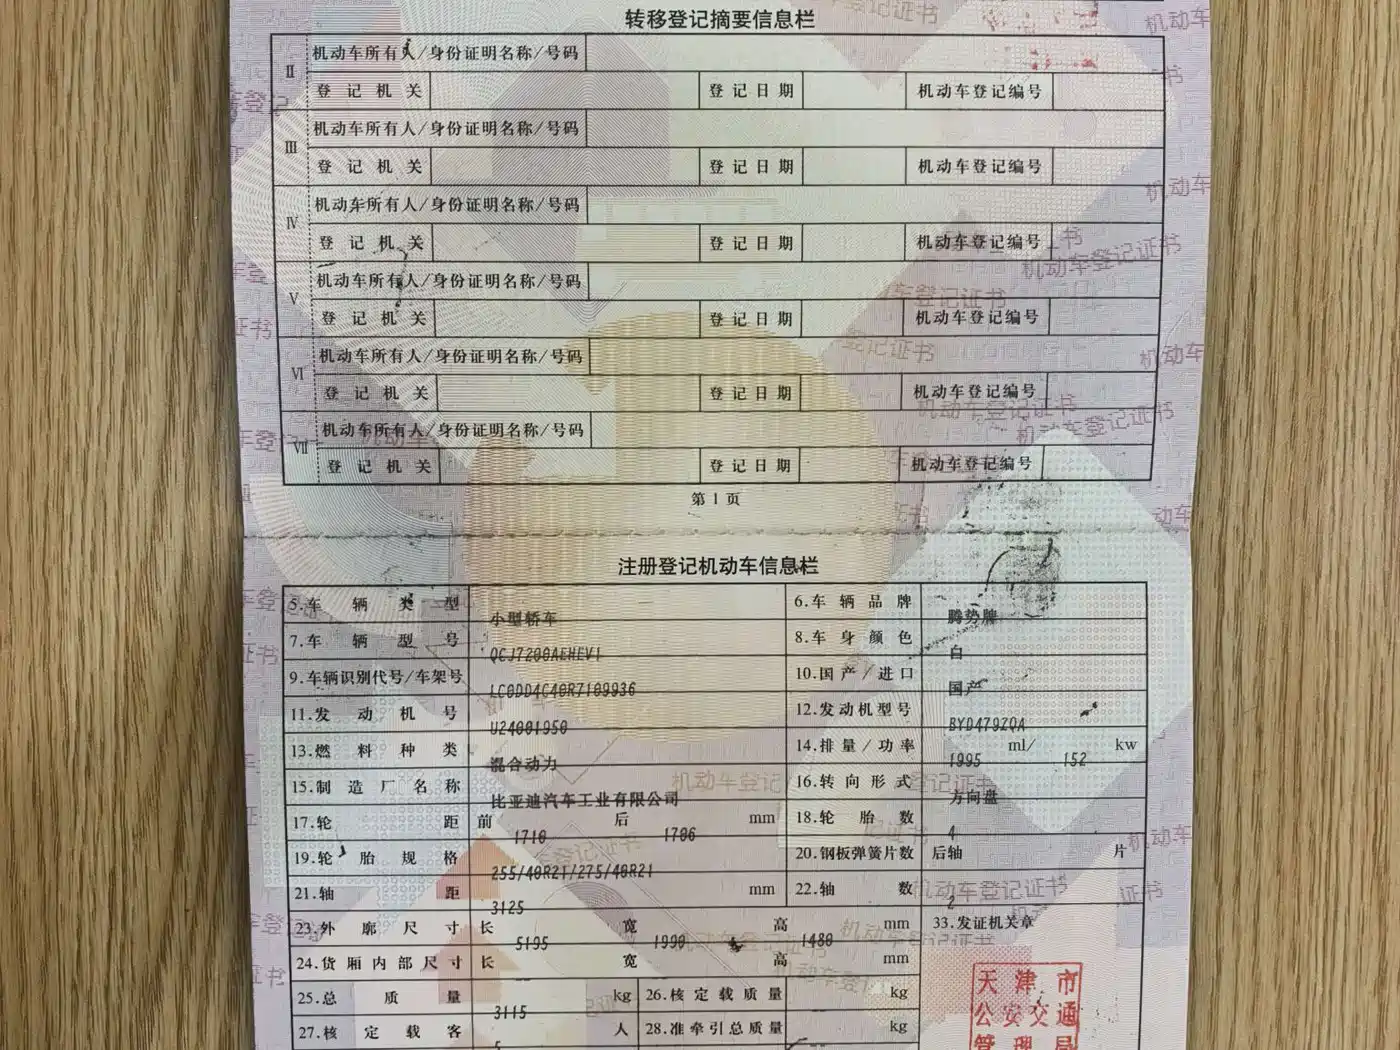 转移登记摘要信息栏
Ⅱ 机动车所有人/身份证明名称/号码
登记机关 登记日期 机动车登记编号
Ⅲ 机动车所有人/身份证明名称/号码
登记机关 登记日期 机动车登记编号
Ⅳ 机动车所有人/身份证明名称/号码
登记机关 登记日期 机动车登记编号
Ⅴ 机动车所有人/身份证明名称/号码
登记机关 登记日期 机动车登记编号
Ⅵ 机动车所有人/身份证明名称/号码
登记机关 登记日期 机动车登记编号
Ⅶ 机动车所有人/身份证明名称/号码
登记机关 登记日期 机动车登记编号
第1页
注册登记机动车信息栏
5.车辆类型 小型轿车 6.车辆品牌 腾势牌
7.车辆型号 QCJ7200AEHEV1 8.车身颜色 白
9.车辆识别代号/车架号 LC0DD4C40R7109936 10.国产/进口 国产
11.发动机号 U24001950 12.发动机型号 BYD479ZQA
13.燃料种类 混合动力 14.排量/功率 1995 ml/ 152 kw
15.制造厂名称 比亚迪汽车工业有限公司 16.转向形式 方向盘
17.轮距 前 1710 后 1706 mm 18.轮胎数 4
19.轮胎规格 255/40R21/275/40R21 20.钢板弹簧片数 后轴 片
21.轴距 3125 mm 22.轴数 2
23.外廓尺寸 长 5195 宽 1990 高 1480 mm 33.发证机关章
24.货厢内部尺寸 长 宽 高 mm
25.总质量 3115 kg 26.核定载质量 kg
27.核定载客 5 人 28.准牵引总质量 kg
天津市
公安交通
管理局